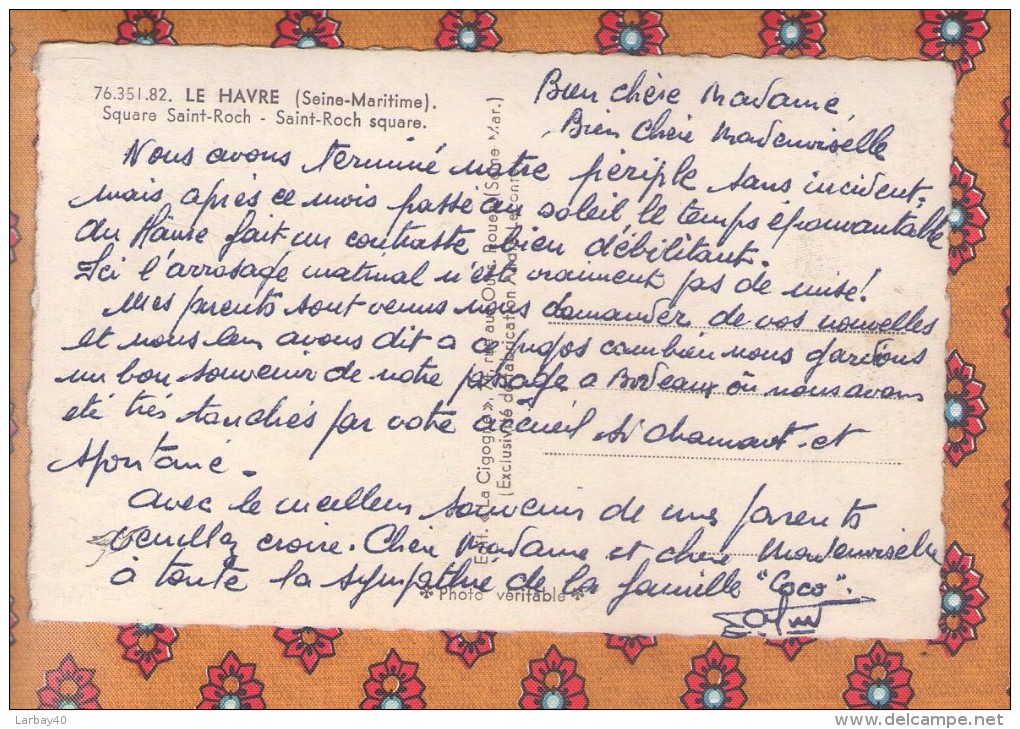 76.351.82. LE HAVRE (Seine-Maritime).
Square Saint-Roch - Saint-Roch square.
Bien chère Madame,
Bien chère Mademoiselle
Nous avons terminé notre périple sans incident,
mais après ce mois passé au soleil le temps épouvantable
du Hâvre fait un contraste bien débilitant.
Ici l'arrosage matinal n'est vraiment pas de mise!
Mes parents sont venus nous demander de vos nouvelles
et nous leur avons dit a ce propos combien nous gardions
un bon souvenir de notre passage a Bordeaux où nous avons
été très touchés par votre accueil si charmant et
spontané.
Avec le meilleur souvenir de mes parents
veuillez croire. Chère Madame et chère Mademoiselle
à toute la sympathie de la famille "Coco".
Edit. « La Cigogne », Rouen (Seine-Mar.)
(Exclusivité de fabrication
* Photo véritable *
Larbay40
www.delcampe.net